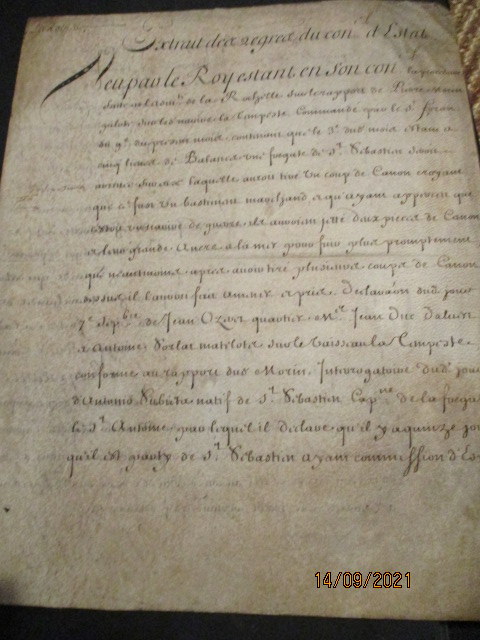 Extrait des regres du con.el d'Estat
Veu par le Roy estant en son con la procedure
faite au la Rochelle sur le rapport de Pierre Morin
pilote sur les navire la tempeste Commandé par le S.r
du 9.e du present mois contenant que le S.r dud mois Etant a
cinq lieues de Baleine une fregate de S.t Sebastien
avenir sur eux laquelle auroit tiré un coup de Canon croyant
que ce fust un bastiment marchand et qu'ayant apperceu que
estoit un navire de guerre ils auroient jetté deux pieces de Canon
et leur grande Ancre a la mer pour fuir plus promptement
que neantmoins apres avoir tiré plusieurs coups de Canon
dessus il l'auroit fait amener et pris Declara.on dud jour
7.e Sep.bre de Jean quartier M.e Jean Duc
et Antoine matelots sur le vaisseau la Tempeste
conforme au rapport dud Morin Interrogatoire dud. jour
d'Antonio natif de S.t Sebastien Cap.ne de la fregate
le S.t Antoine par lequel il declare qu'il y a quinze jo
qu'il est party de S.t Sebastien ayant commission d'Es
14/09/2021